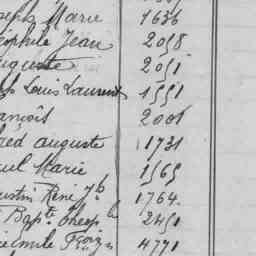 Marie 1636
éophile Jean 2058
uguste 2051
Louis Laurent 1551
ançois 2001
red auguste 1731
uel Marie 1569
ustin René Jh 1764
Bapte 2451
Emile Fçois 4771